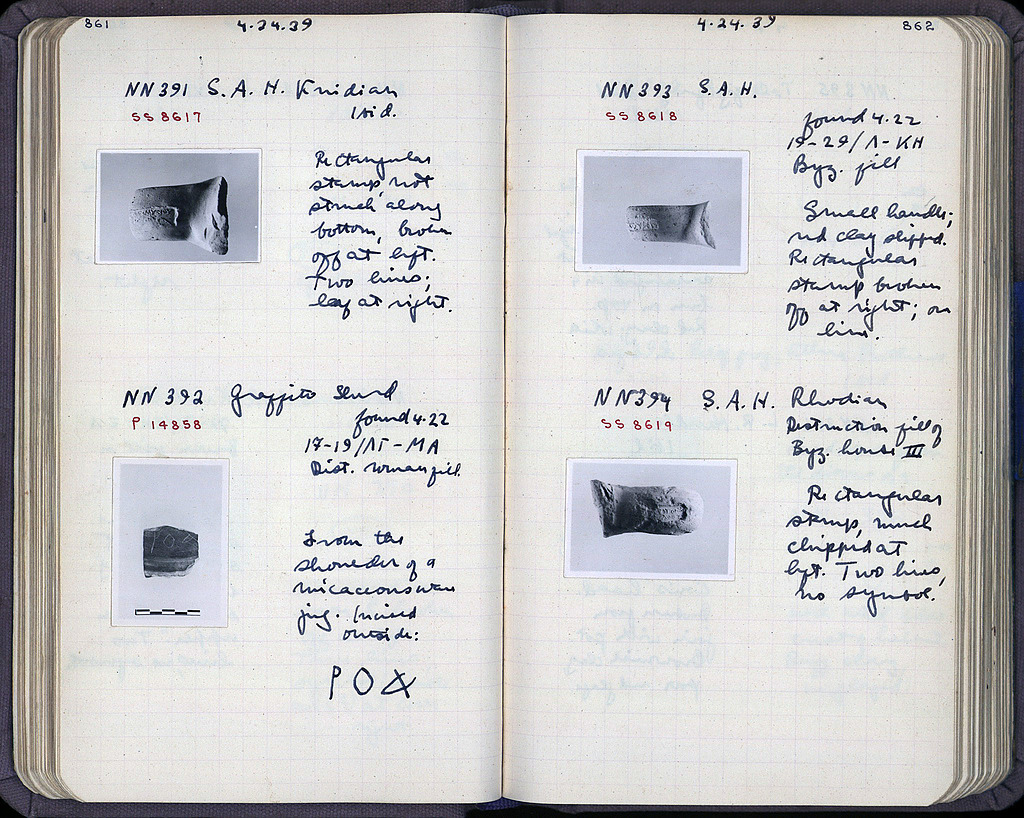 861
4.24.39
NN 391 S. A. H. Knidian
Ibid.
SS 8617
Rectangular
stamp, not
struck along
bottom, broken
off at left.
Two lines;
leaf at right.
NN 392 Graffito Sherd
P. 14858
found 4.22
17-19/ΛΓ-MA
Dist. roman fill.
From the
shoulder of a
micaceous ware
jug. Incised
outside:
P O
4.24.39
862
NN 393 S. A. H.
SS 8618
found 4.22
19-29/Λ-KH
Byz. fill
Small handle;
red clay slipped.
Rectangular
stamp broken
off at right; one
line.
NN 394 S. A. H. Rhodian
SS 8619
Destruction fill of
Byz. house III
Rectangular
stamp, much
chipped at
left. Two lines,
no symbol.